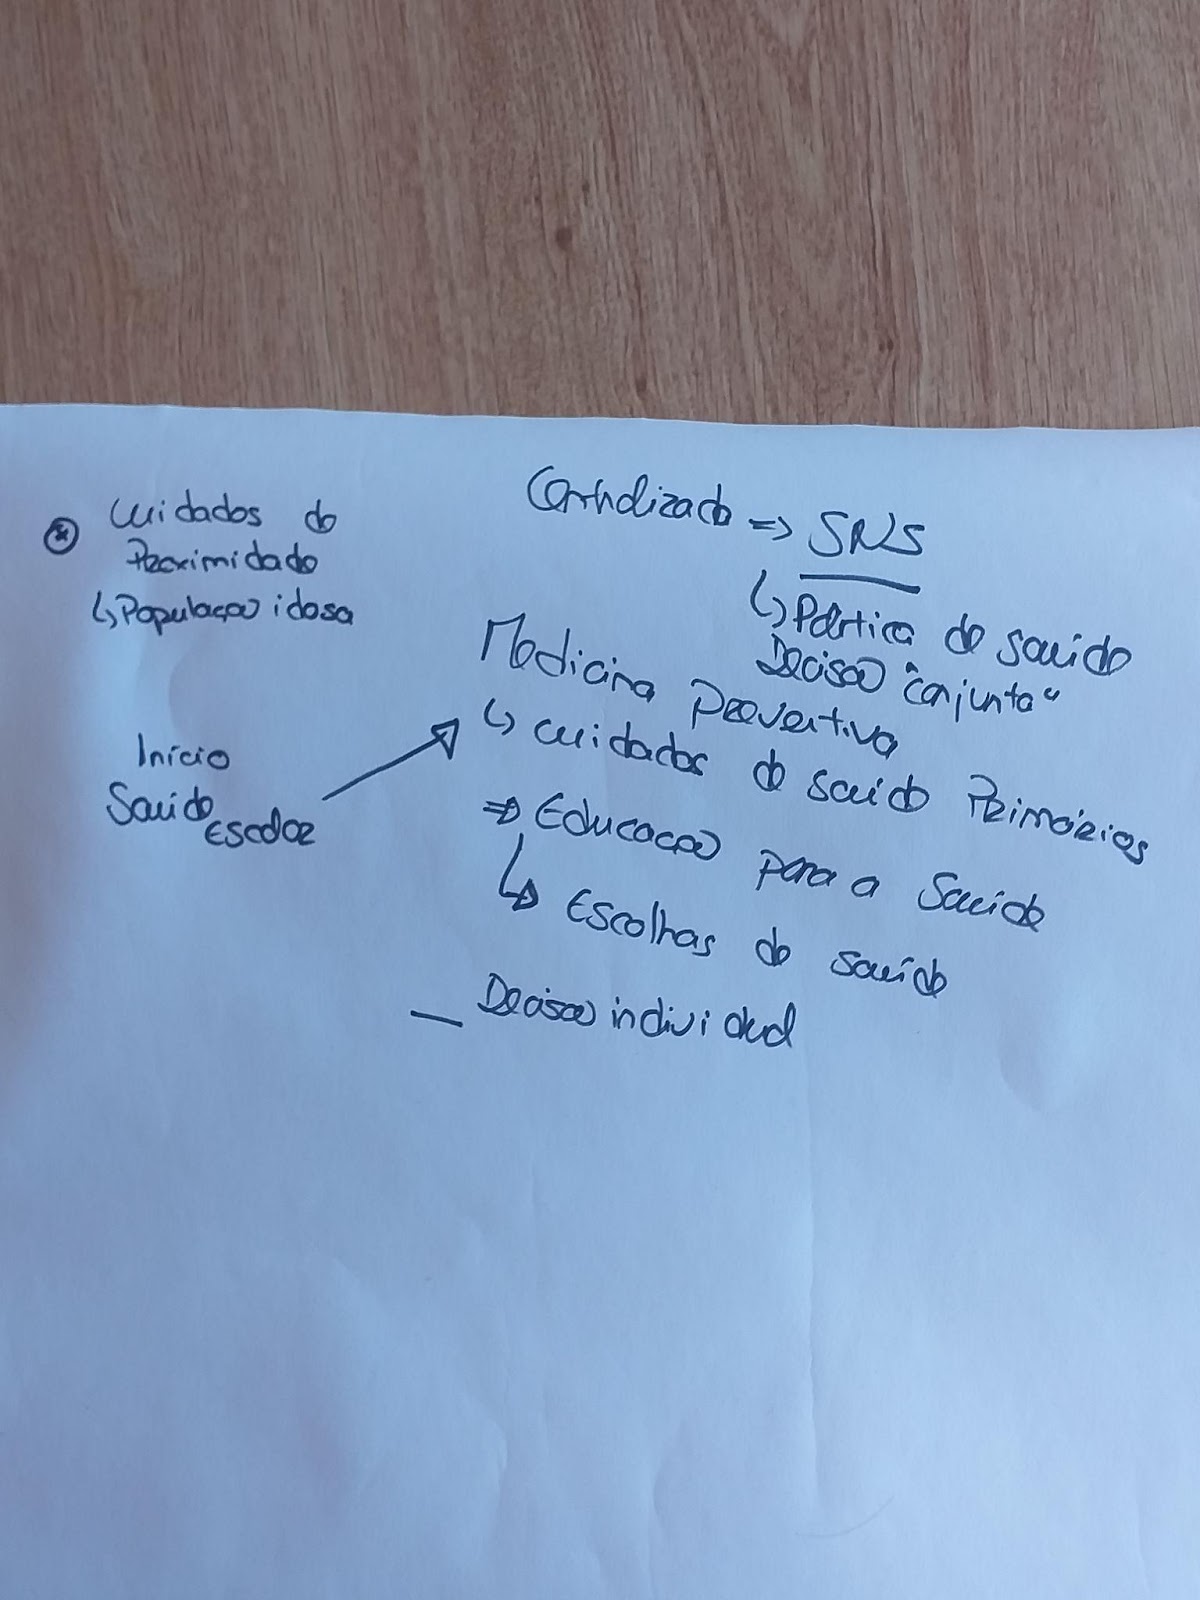 Centralizado => SNS
↳ Política de saúde
Decisão "conjunta"
* Cuidados de
Proximidade
↳ População idosa
Medicina Preventiva
↳ cuidados de saúde Primários
Início
Saúde Escolar
=> Educação para a Saúde
↳ Escolhas de saúde
— Decisão individual